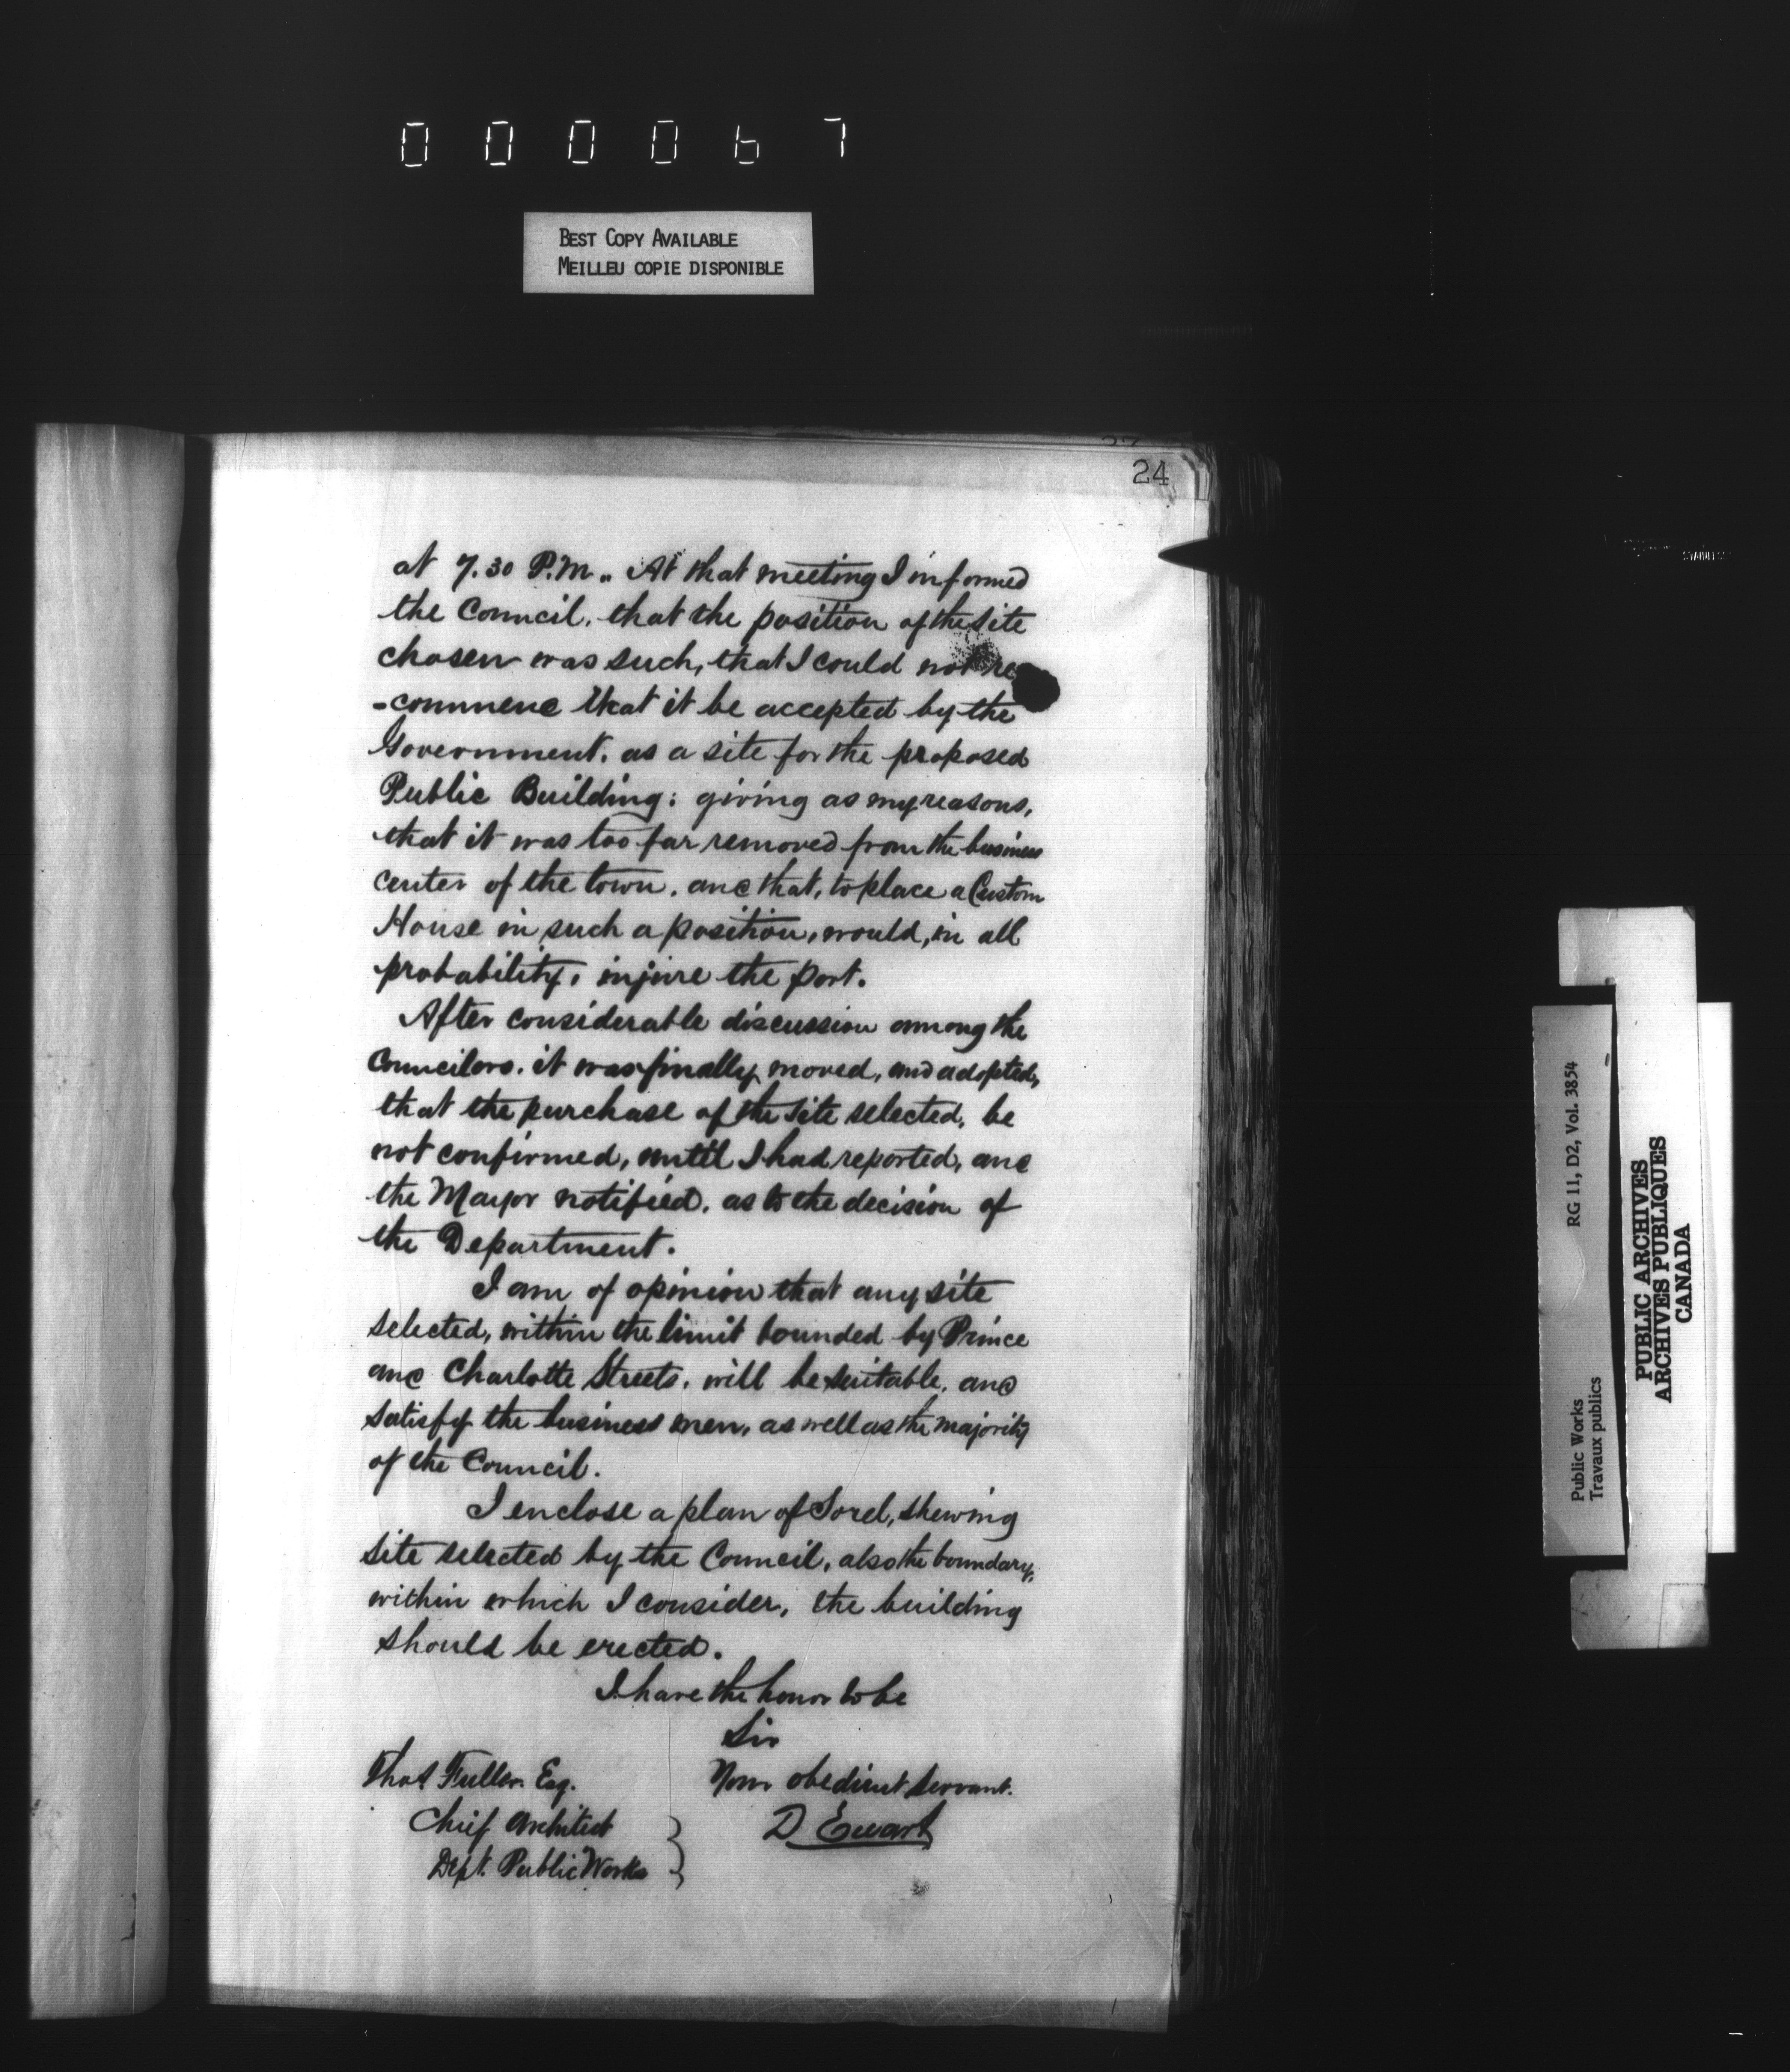 000067
BEST COPY AVAILABLE
MEILLEU COPIE DISPONIBLE
24
at 7.30 P.M. At that meeting I informed
the Council, that the position of the site
chosen was such, that I could not re
-commend that it be accepted by the
Government, as a site for the proposed
Public Building; giving as my reasons,
that it was too far removed from the business
center of the town, and that, to place a Custom
House in such a position, would, in all
probability, injure the port.
After considerable discussion among the
Councilors, it was finally moved, and adopted,
that the purchase of the site selected, be
not confirmed, until I had reported, and
the Mayor notified, as to the decision of
the Department.
I am of opinion that any site
selected, within the limit bounded by Prince
and Charlotte Streets, will be suitable, and
satisfy the business men, as well as the majority
of the Council.
I enclose a plan of Sorel, shewing
site selected by the Council, also the boundary,
within which I consider, the building
should be erected.
I have the honor to be
Sir
Your obedient servant.
D Ewart
Thos. Fuller. Esq.
Chief Architect
Dept. Public Works
RG 11, D2, Vol. 3854
Public Works
Travaux publics
PUBLIC ARCHIVES
ARCHIVES PUBLIQUES
CANADA